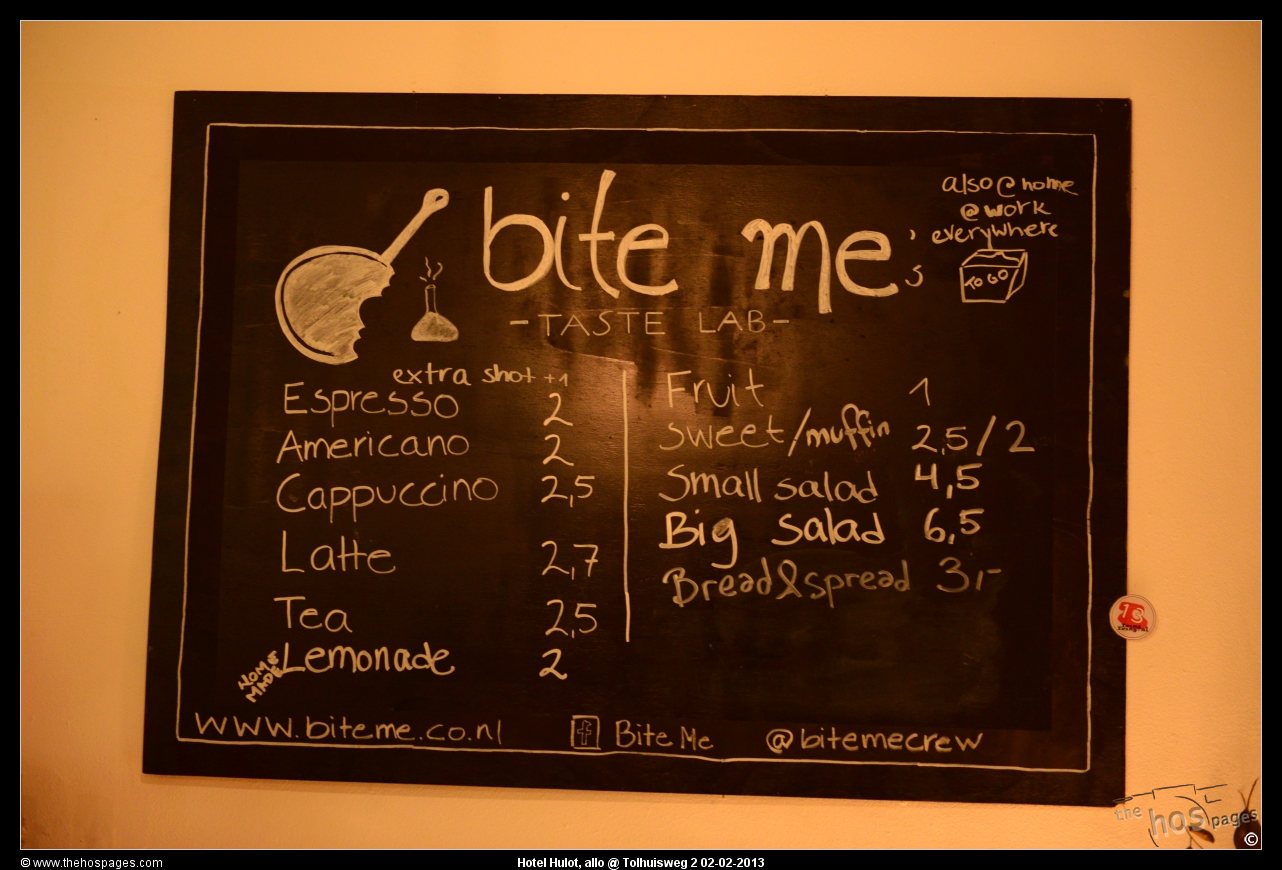 also @ home
@ work
everywhere
TO GO
bite me's
-TASTE LAB-
extra shot +1
Espresso 2
Americano 2
Cappuccino 2,5
Latte 2,7
Tea 2,5
HOME MADE Lemonade 2
Fruit 1
Sweet/muffin 2,5/2
Small salad 4,5
Big Salad 6,5
Bread&spread 3,-
www.biteme.co.nl f Bite Me @bitemecrew
the hos pages
©
© www.thehospages.com Hotel Hulot, allo @ Tolhuisweg 2 02-02-2013